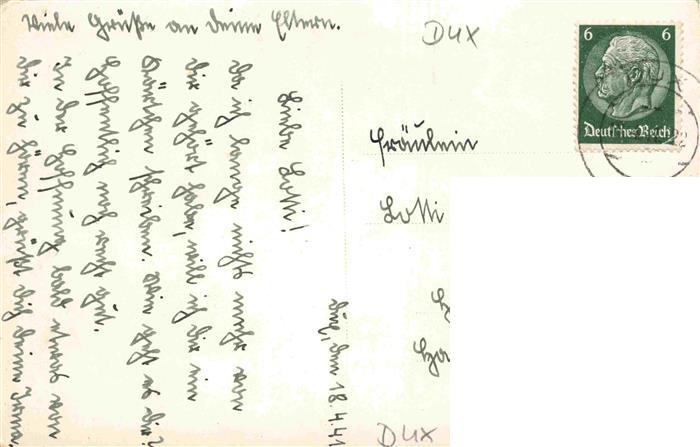 Viele Grüße an deine Eltern.
Dux, den 18.4.41
Liebe Lotti!
Da ich lange nichts mehr von
dir gehört habe, will ich dir ein
Kärtchen schreiben. Wie geht es dir?
Hoffentlich noch recht gut.
In der Hoffnung bald etwas von
dir zu hören, grüßt dich deine
DUX
6 6
Deutsches Reich
Fräulein
Lotti
DUX